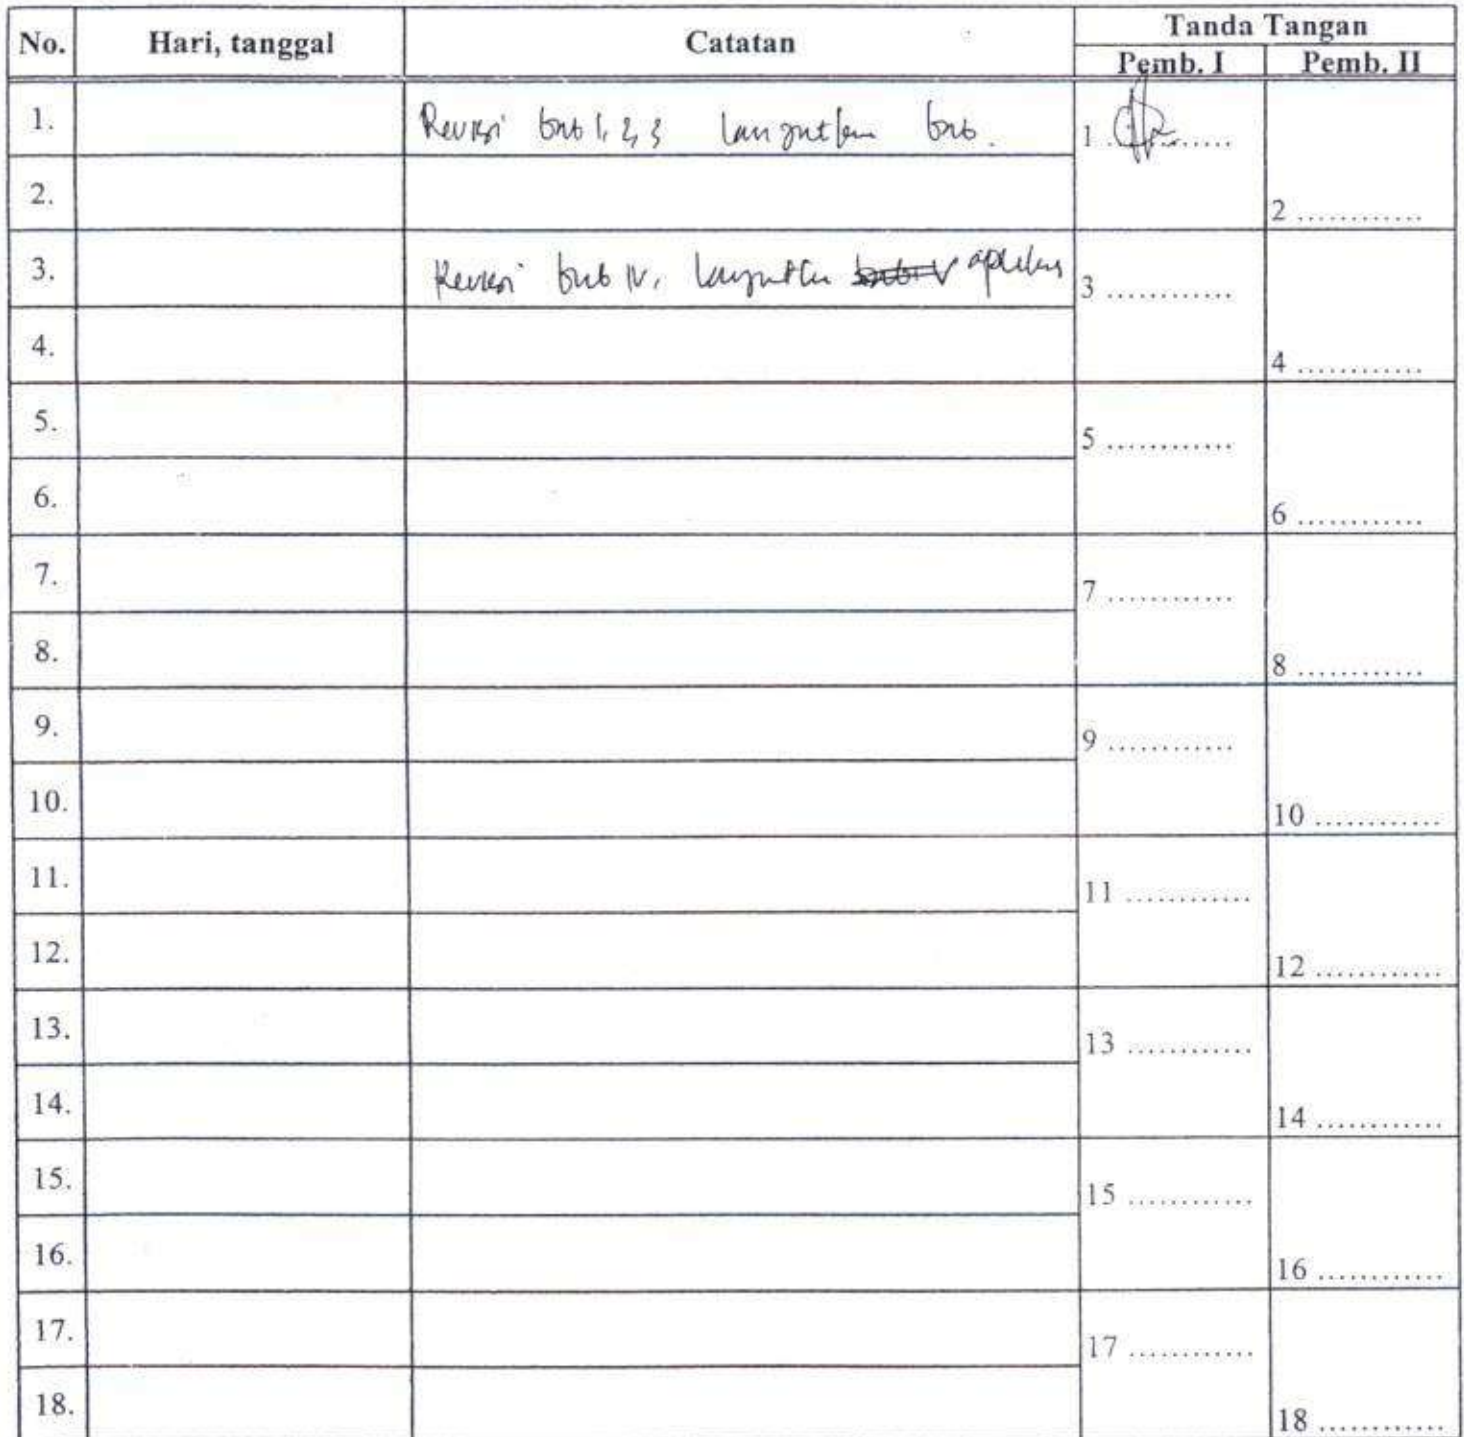 No. Hari, tanggal Catatan Tanda Tangan
Pemb. I Pemb. II
1. Revisi bab 1, 2, 3 lanjutkan bab. 1 ............
2. 2 ............
3. Revisi bab IV, lanjutkan aplikasi 3 ............
4. 4 ............
5. 5 ............
6. 6 ............
7. 7 ............
8. 8 ............
9. 9 ............
10. 10 ............
11. 11 ............
12. 12 ............
13. 13 ............
14. 14 ............
15. 15 ............
16. 16 ............
17. 17 ............
18. 18 ............